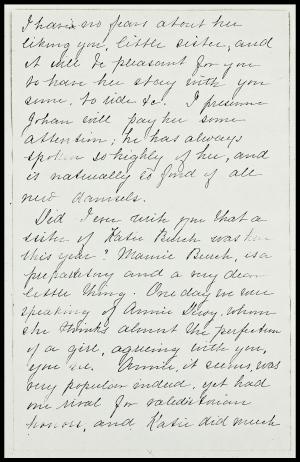 I have no fears about her
liking you, little sister, and
it will be pleasant for you
to have her stay with you
some, to ride &c. I presume
Johan will pay her some
attention; he has always
spoken so highly of her, and
is naturally so fond of all
new damsels.
Did I ever write you that a
sister of Katie Burch was here
this year? Mamie Burch, is a
preparatory and a very dear
little thing. One day we were
speaking of Annie whom
she thinks almost the perfection
of a girl, agreeing with you,
you see. Annie, it seems, was
very popular indeed, yet had
one rival for valedictorian
honors, and Katie did much